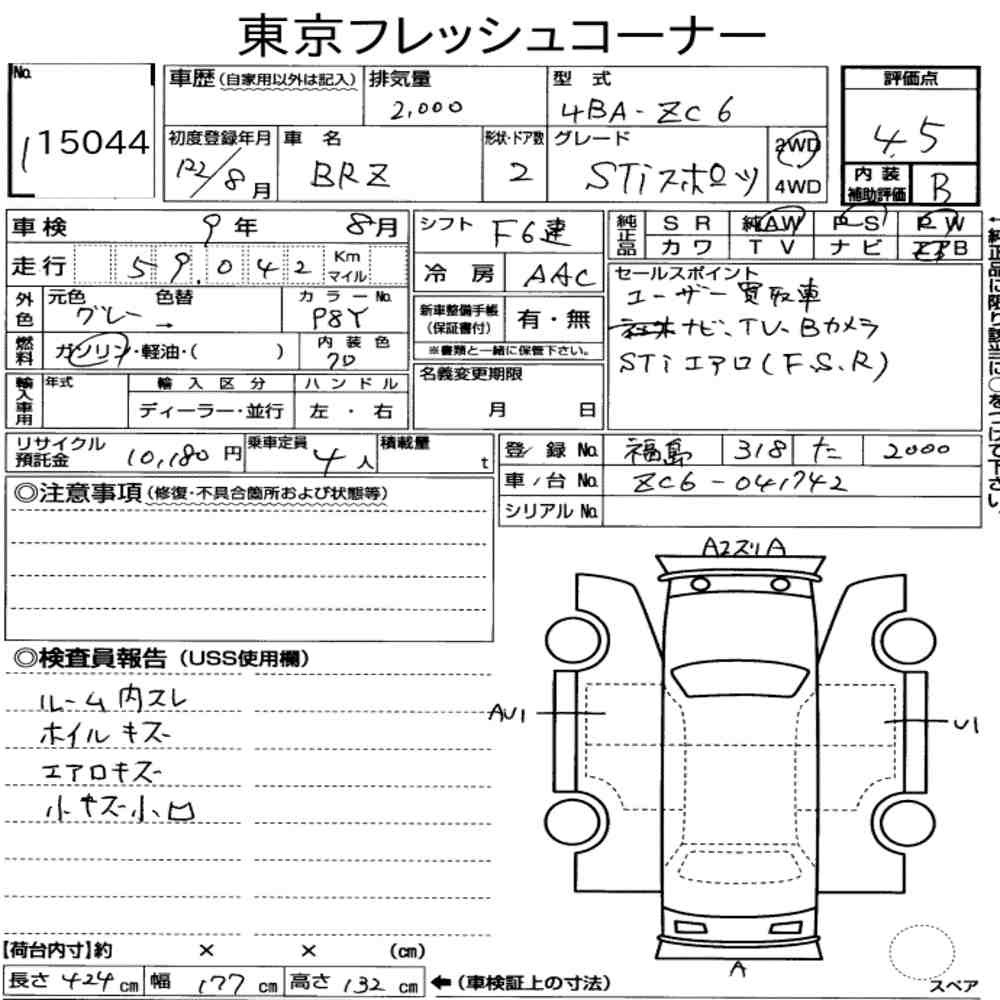 東京フレッシュコーナー
No. 15044
車歴 (自家用以外は記入)
排気量 2,000
型式 4BA-ZC6
評価点 4.5
初度登録年月 '22/8月
車名 BRZ
形状・ドア数 2
グレード STiスポーツ
2WD
4WD
内装補助評価 B
車検 9年 8月
シフト F6速
純正品 SR 純AW PS PW
カワ TV ナビ エアB
走行 59,042 Km マイル
冷房 AAC
外色 元色 グレー 色替 →
カラーNo. P8Y
新車整備手帳(保証書付) 有・無
※書類と一緒に保管下さい。
セールスポイント
ユーザー買取車
ナビ、TV、Bカメラ
STiエアロ(F.S.R)
燃料 ガソリン・軽油・( )
内装色 クロ
名義変更期限 月 日
輸入車用 年式
輸入区分 ディーラー・並行
ハンドル 左・右
←純正品に限り該当に○をつけて下さい。
リサイクル預託金 10,180円
乗車定員 4人
積載量 t
登録No. 福島 318 た 2000
車台No. ZC6-041742
シリアルNo.
◎注意事項 (修復・不具合箇所および状態等)
◎検査員報告 (USS使用欄)
ルーム内スレ
ホイルキズ
エアロキズ
小キズ小凹
A2スリA
AU1
U1
A
【荷台内寸】約 × × (cm)
長さ 424cm 幅 177cm 高さ 132cm ←(車検証上の寸法)
スペア